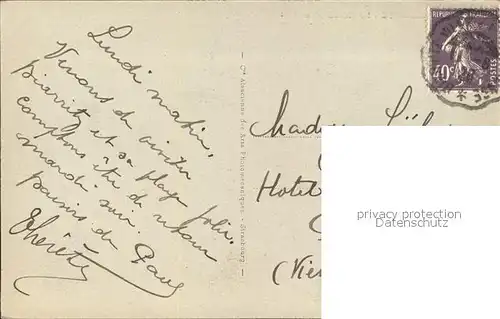 Lundi matin.
Venons de visiter
Biarritz et sa plage jolie.
comptons être de retour
mardi soir.
baisers de Paul
Cie Alsacienne des Arts Photomécaniques - Strasbourg
RÉPUBLIQUE FRANÇAISE
40c
POSTES
Madame
Hotel
(Vien
privacy protection
Datenschutz